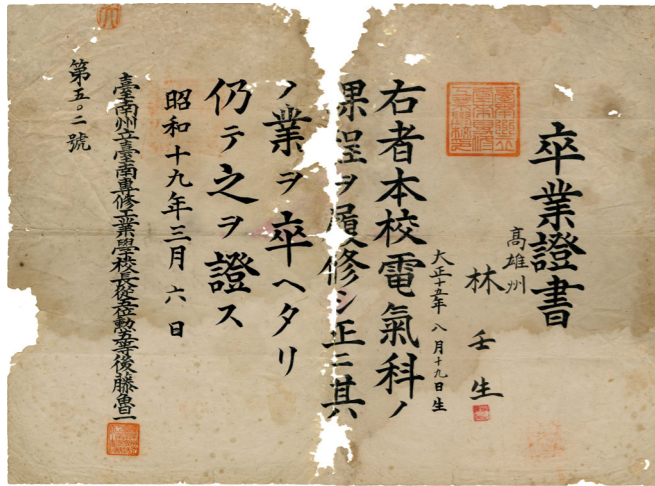 卒業證書
高雄州
林壬生
大正十五年八月十九日生
右者本校電氣科ノ
課程ヲ履修シ正ニ其
ノ業ヲ卒ヘタリ
仍テ之ヲ證ス
昭和十九年三月六日
臺南州立臺南專修工業學校長從五位勳五等後藤魯一
第五〇二號